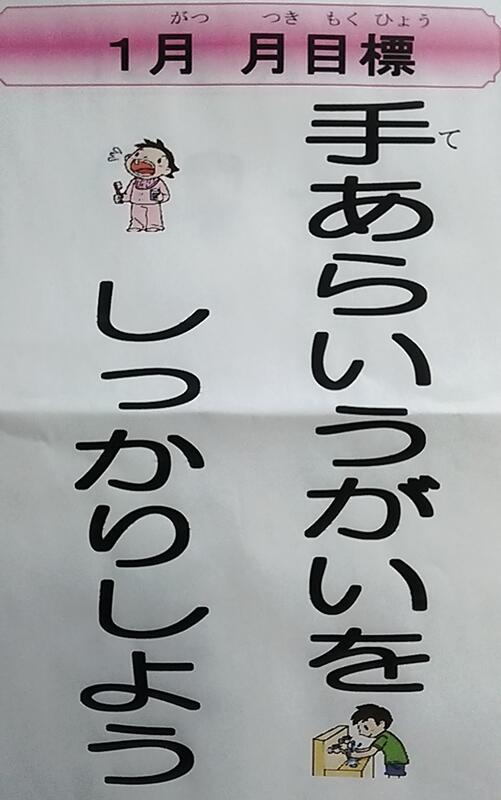 がつ つき もく ひょう
1月 月目標
て
手あらいうがいを
しっかりしよう